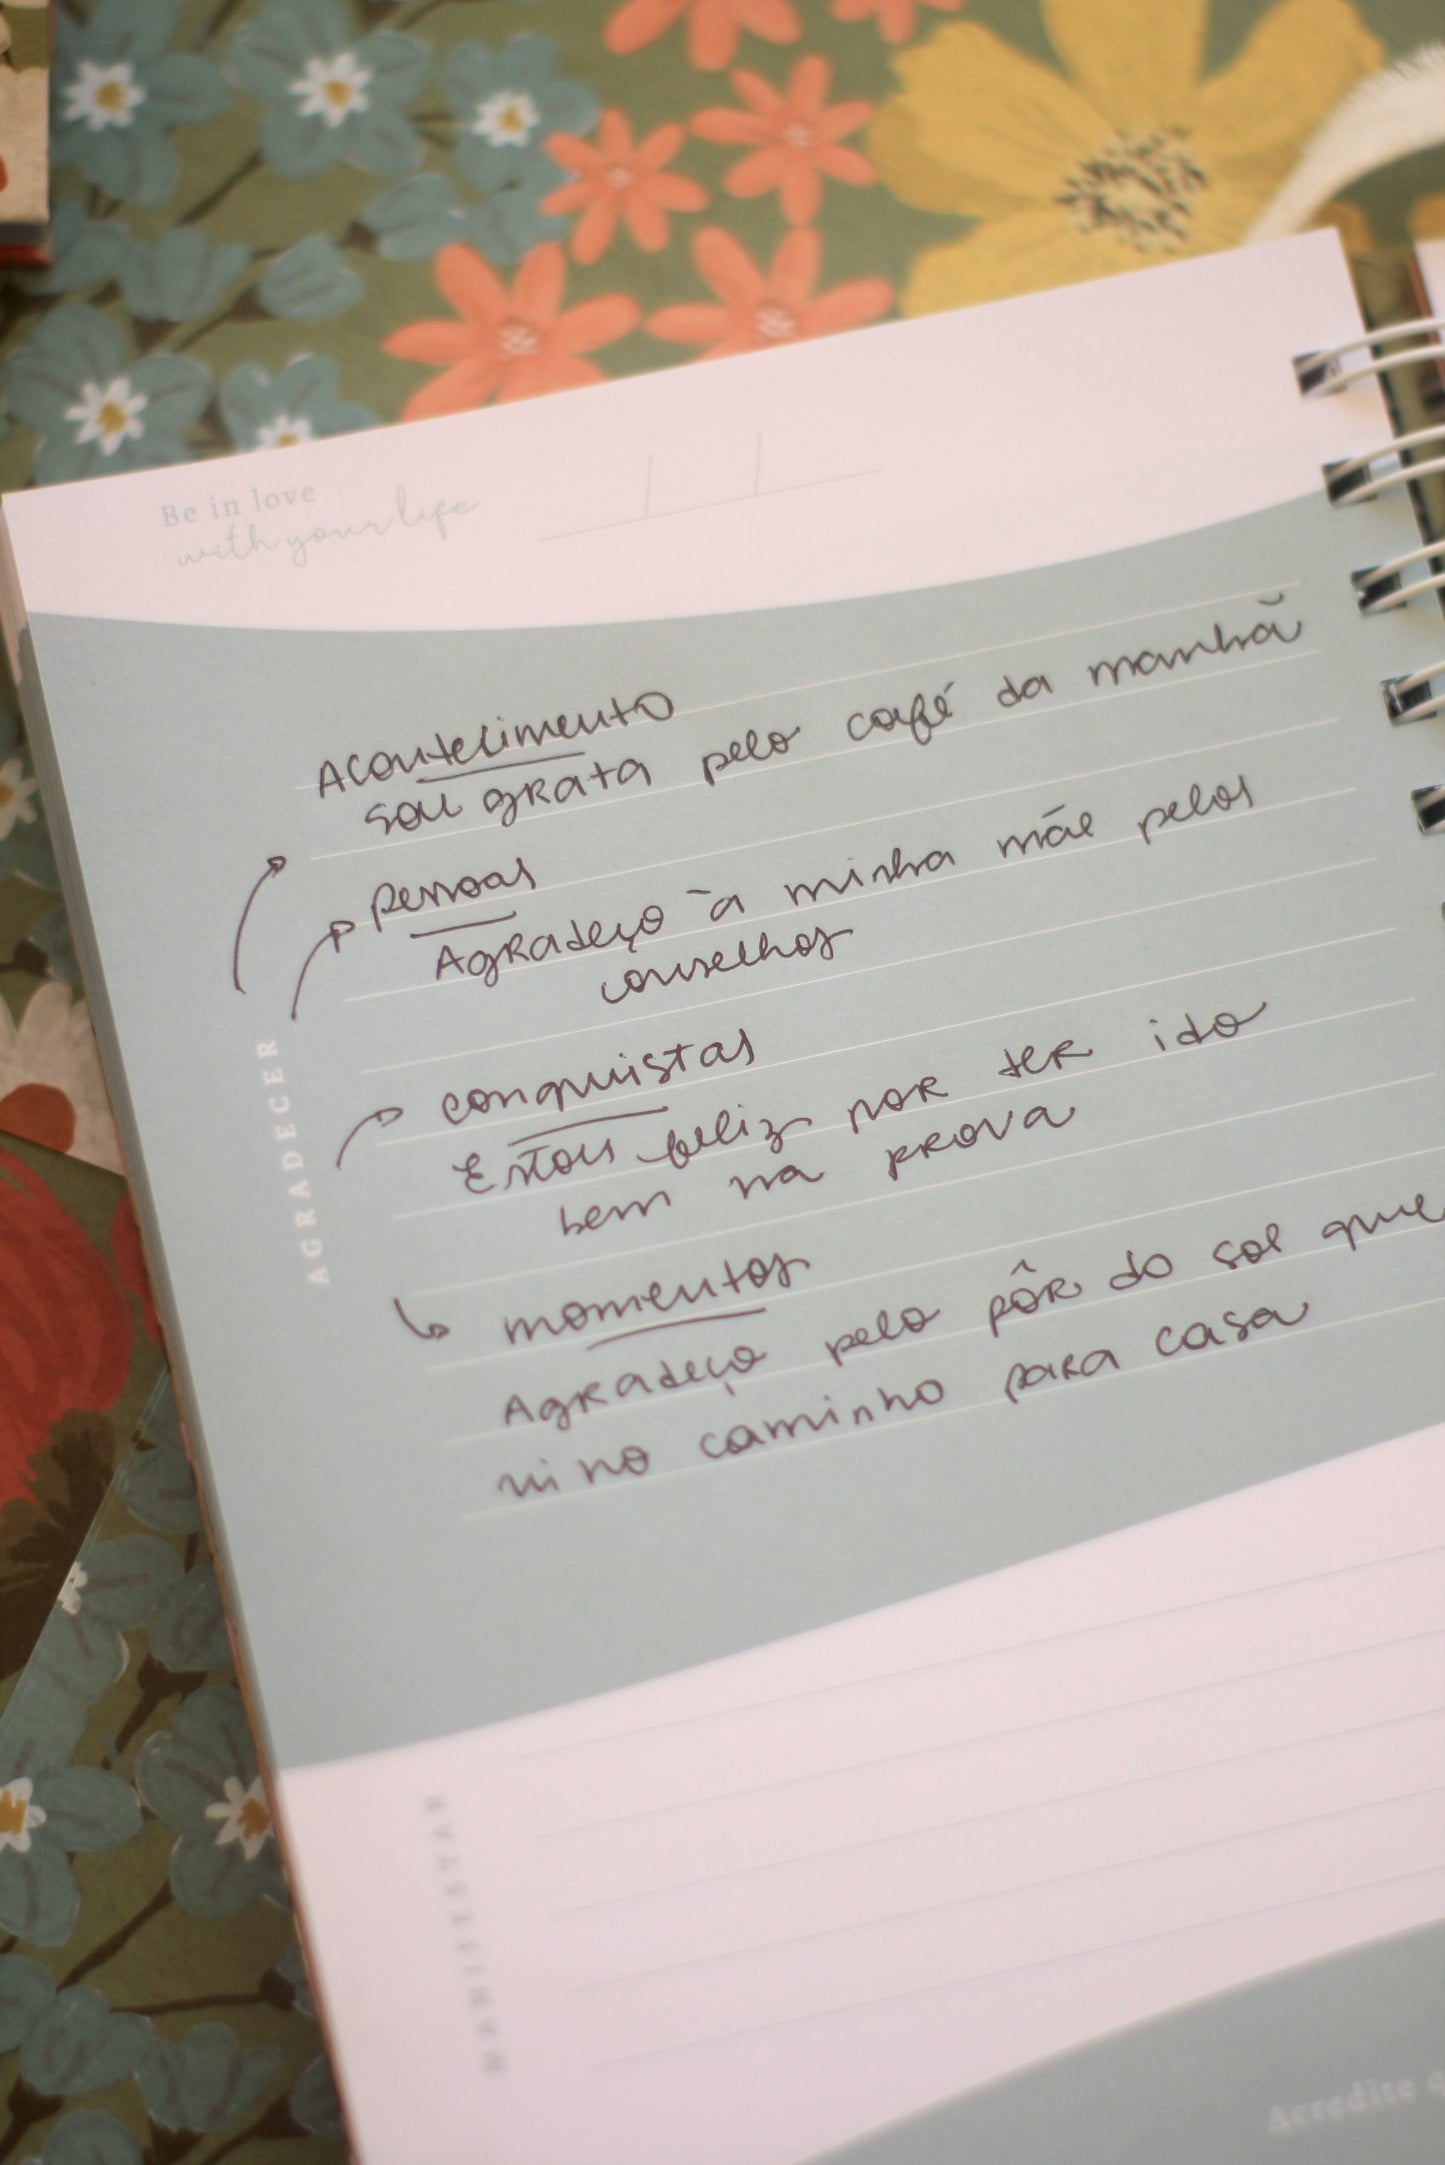 Be in love
with your life
Acontecimento
sou grata pelo café da manhã
pessoas
Agradeço à minha mãe pelos
conselhos
conquistas
Estou feliz por ter ido
bem na prova
momentos
Agradeço pelo pôr do sol que
vi no caminho para casa
AGRADECER
MANIFESTAR
Acredite